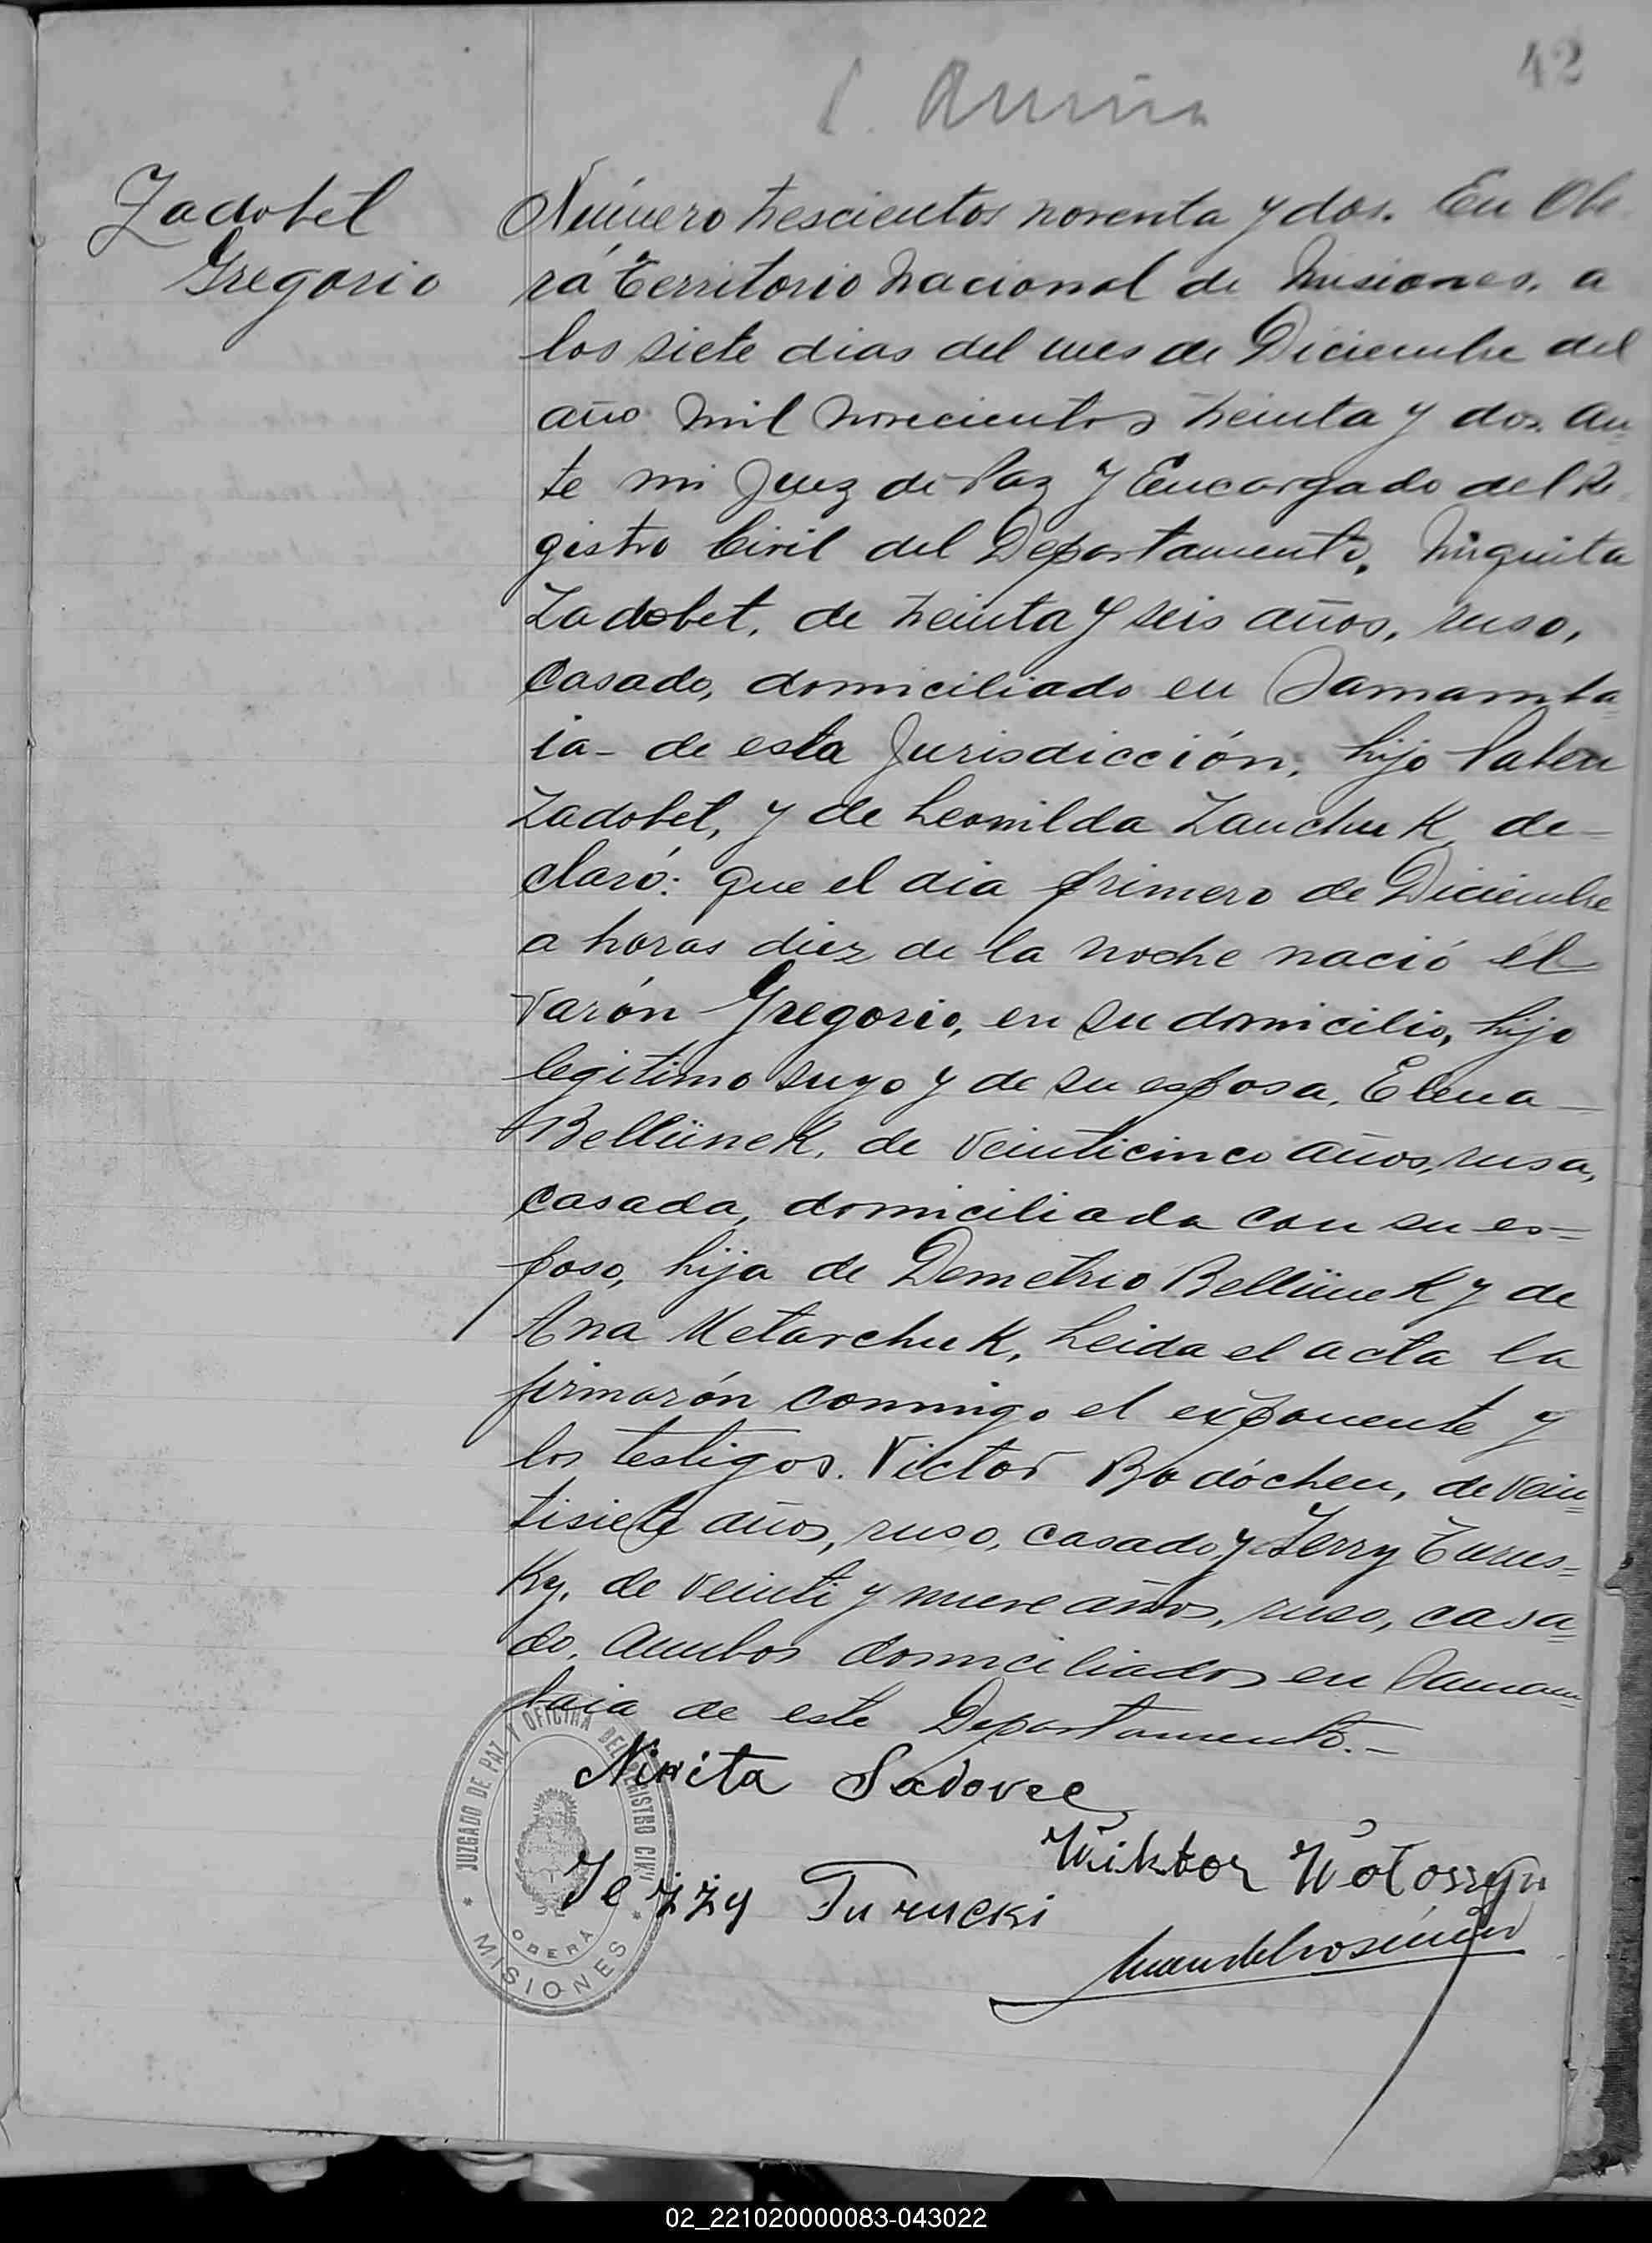 42
Zadobet
Gregorio
Número trescientos noventa y dos. En Obe
rá Territorio Nacional de Misiones, a
los siete dias del mes de Diciembre del
año mil novecientos treinta y dos. an=
te mi Juez de Paz y Encargado del Re=
gistro Civil del Departamento, Niquita
Zadobet, de treinta y seis años, ruso,
casado, domiciliado en Samamba=
ia- de esta Jurisdicción, hijo
Zadobet, y de Leonilda Zanchuk, de-
claró: que el dia primero de Diciembre
a horas diez de la noche nació el
varón Gregorio, en su domicilio, hijo
legitimo suyo y de su esposa, Elena-
Bellünek, de veinticinco años, rusa,
casada, domiciliada con su es=
poso, hija de Demetrio Bellünek y de
Ana Metarchuk, Leida el acta la
firmarón conmigo el exponente y
los testigos. Victor Bodóchen, de vein=
tisiete años, ruso, casado, y Jerry Turus=
ky, de veinti y nueve años, ruso, casa=
do, ambos domiciliados en Samam=
baia de este Departamento.-
Nikita Sadovec
Wiktor Wołoszyn
Jeżży Turucki
JUZGADO DE PAZ Y OFICINA DEL REGISTRO CIVIL
OBERÁ
* MISIONES *
02_221020000083-043022